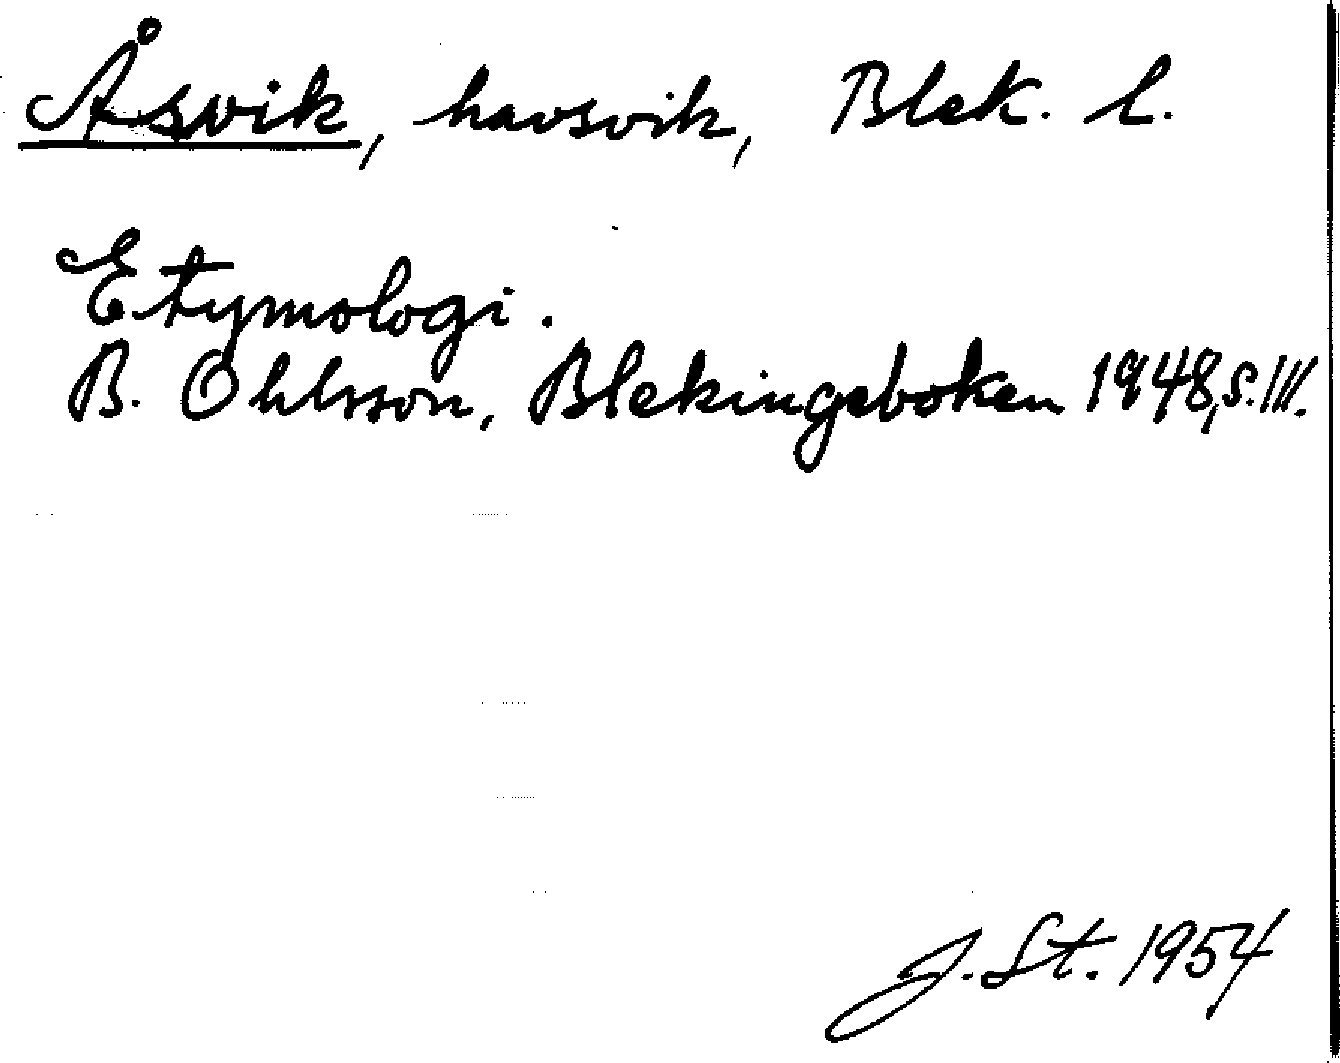 Åsvik, havsvik, Blek. l.
Etymologi.
B. Ohlsson, Blekingeboken 1948, s. 111.
J. St. 1954